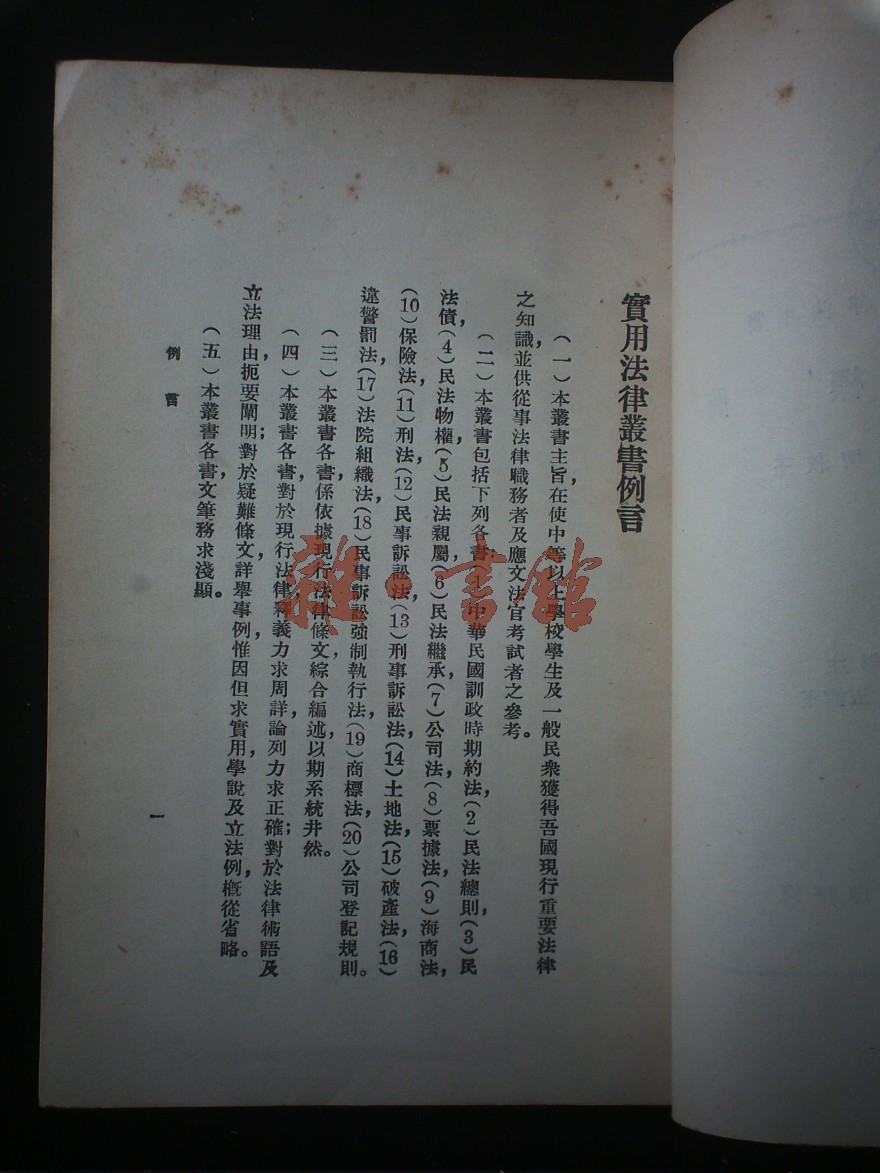 實用法律叢書例言
(一)本叢書主旨,在使中等以上學校學生及一般民衆獲得吾國現行重要法律
之知識,並供從事法律職務者及應文法官考試者之參考。
(二)本叢書包括下列各書:(1)中華民國訓政時期約法,(2)民法總則,(3)民
法債,(4)民法物權,(5)民法親屬,(6)民法繼承,(7)公司法,(8)票據法,(9)海商法,
(10)保險法,(11)刑法,(12)民事訴訟法,(13)刑事訴訟法,(14)土地法,(15)破產法,(16)
違警罰法,(17)法院組織法,(18)民事訴訟強制執行法,(19)商標法,(20)公司登記規則。
(三)本叢書各書係依據現行法律條文,綜合編述,以期系統井然。
(四)本叢書各書,對於現行法律,釋義力求周詳,論列力求正確;對於法律術語及
立法理由,扼要闡明;對於疑難條文,詳舉事例,惟因但求實用,學說及立法例,概從省略。
(五)本叢書各書,文筆務求淺顯。
例言
一
雜·書館